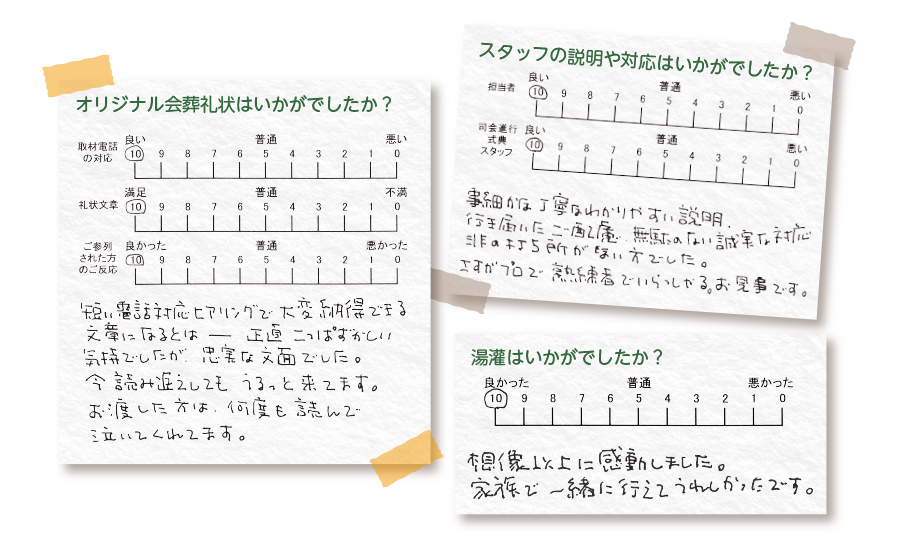 オリジナル会葬礼状はいかがでしたか？
取材電話の対応
良い 普通 悪い
10 9 8 7 6 5 4 3 2 1 0
礼状文章
満足 普通 不満
10 9 8 7 6 5 4 3 2 1 0
ご参列された方のご反応
良かった 普通 悪かった
10 9 8 7 6 5 4 3 2 1 0
短い電話対応ヒアリングで大変納得できる
文章になるとは ― 正直 こっぱずかしい
気持でしたが、忠実な文面でした。
今読み返えしても うるっと来てます。
お渡しした方は、何度も読んで
泣いてくれてます。
スタッフの説明や対応はいかがでしたか？
担当者
良い 普通 悪い
10 9 8 7 6 5 4 3 2 1 0
司会進行
式典
スタッフ
良い 普通 悪い
10 9 8 7 6 5 4 3 2 1 0
事細かな丁寧なわかりやすい説明、
行き届いたご配慮、無駄のない誠実な対応
非の打ち所がない方でした。
さすがプロで熟練者でいらっしゃる。お見事です。
湯灌はいかがでしたか？
良かった 普通 悪かった
10 9 8 7 6 5 4 3 2 1 0
想像以上に感動しました。
家族で一緒に行えてうれしかったです。